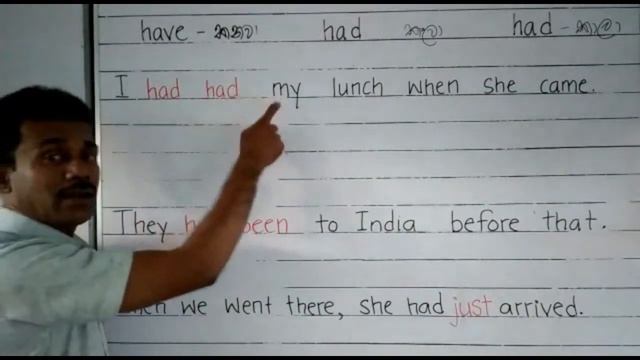 have - කනවා had කෑවා had - කාලා
I had had my lunch when she came.
They been to India before that.
we went there, she had just arrived.